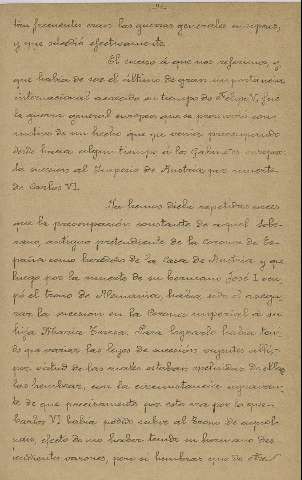 tan frecuentes eran las guerras generales europeas,
y que sucedió efectivamente.
El suceso á que nos referimos, y
que había de ser el último de gran importancia
internacional acaecido en tiempo de Felipe V, fue
la guerra general europea que se promovió con
motivo de un hecho que ya venía preocupando
desde hacía algun tiempo á los Gabinetes europeos
la sucesion al Imperio de Austria por muerte
de Carlos VI.
Ya hemos dicho repetidas veces
que la preocupación constante de aquel sobe-
rano, antiguo pretendiente de la corona de Es-
paña como heredero de la Casa de Austria y que
luego por la muerte de su hermano José I ocu-
pó el trono de Alemania, había sido el asegu-
rar la sucesion en la Corona imperial á su
hija María Teresa. Para lograrlo había te-
que variar las leyes de sucesión vigentes allí,
por virtud de las cuales estaban excluidas de ella
las hembras, con la circunstancia agravan-
te de que precisamente por esta era por lo que
Carlos VI había podido subir al trono de aquel
pais, efecto de no haber tenido su hermano des-
cendientes varones, pero sí hembras que de